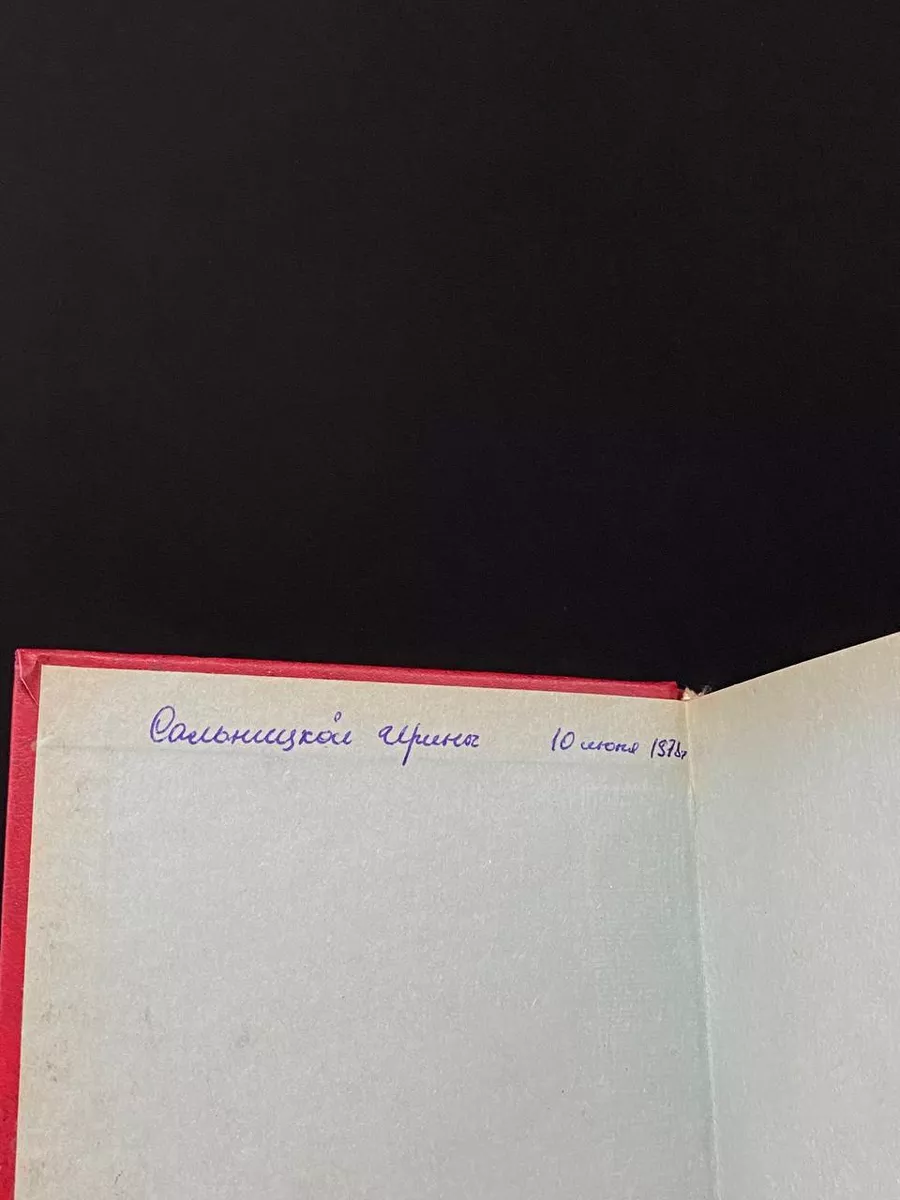 Сальницкой Ирины 10 июня 1978г